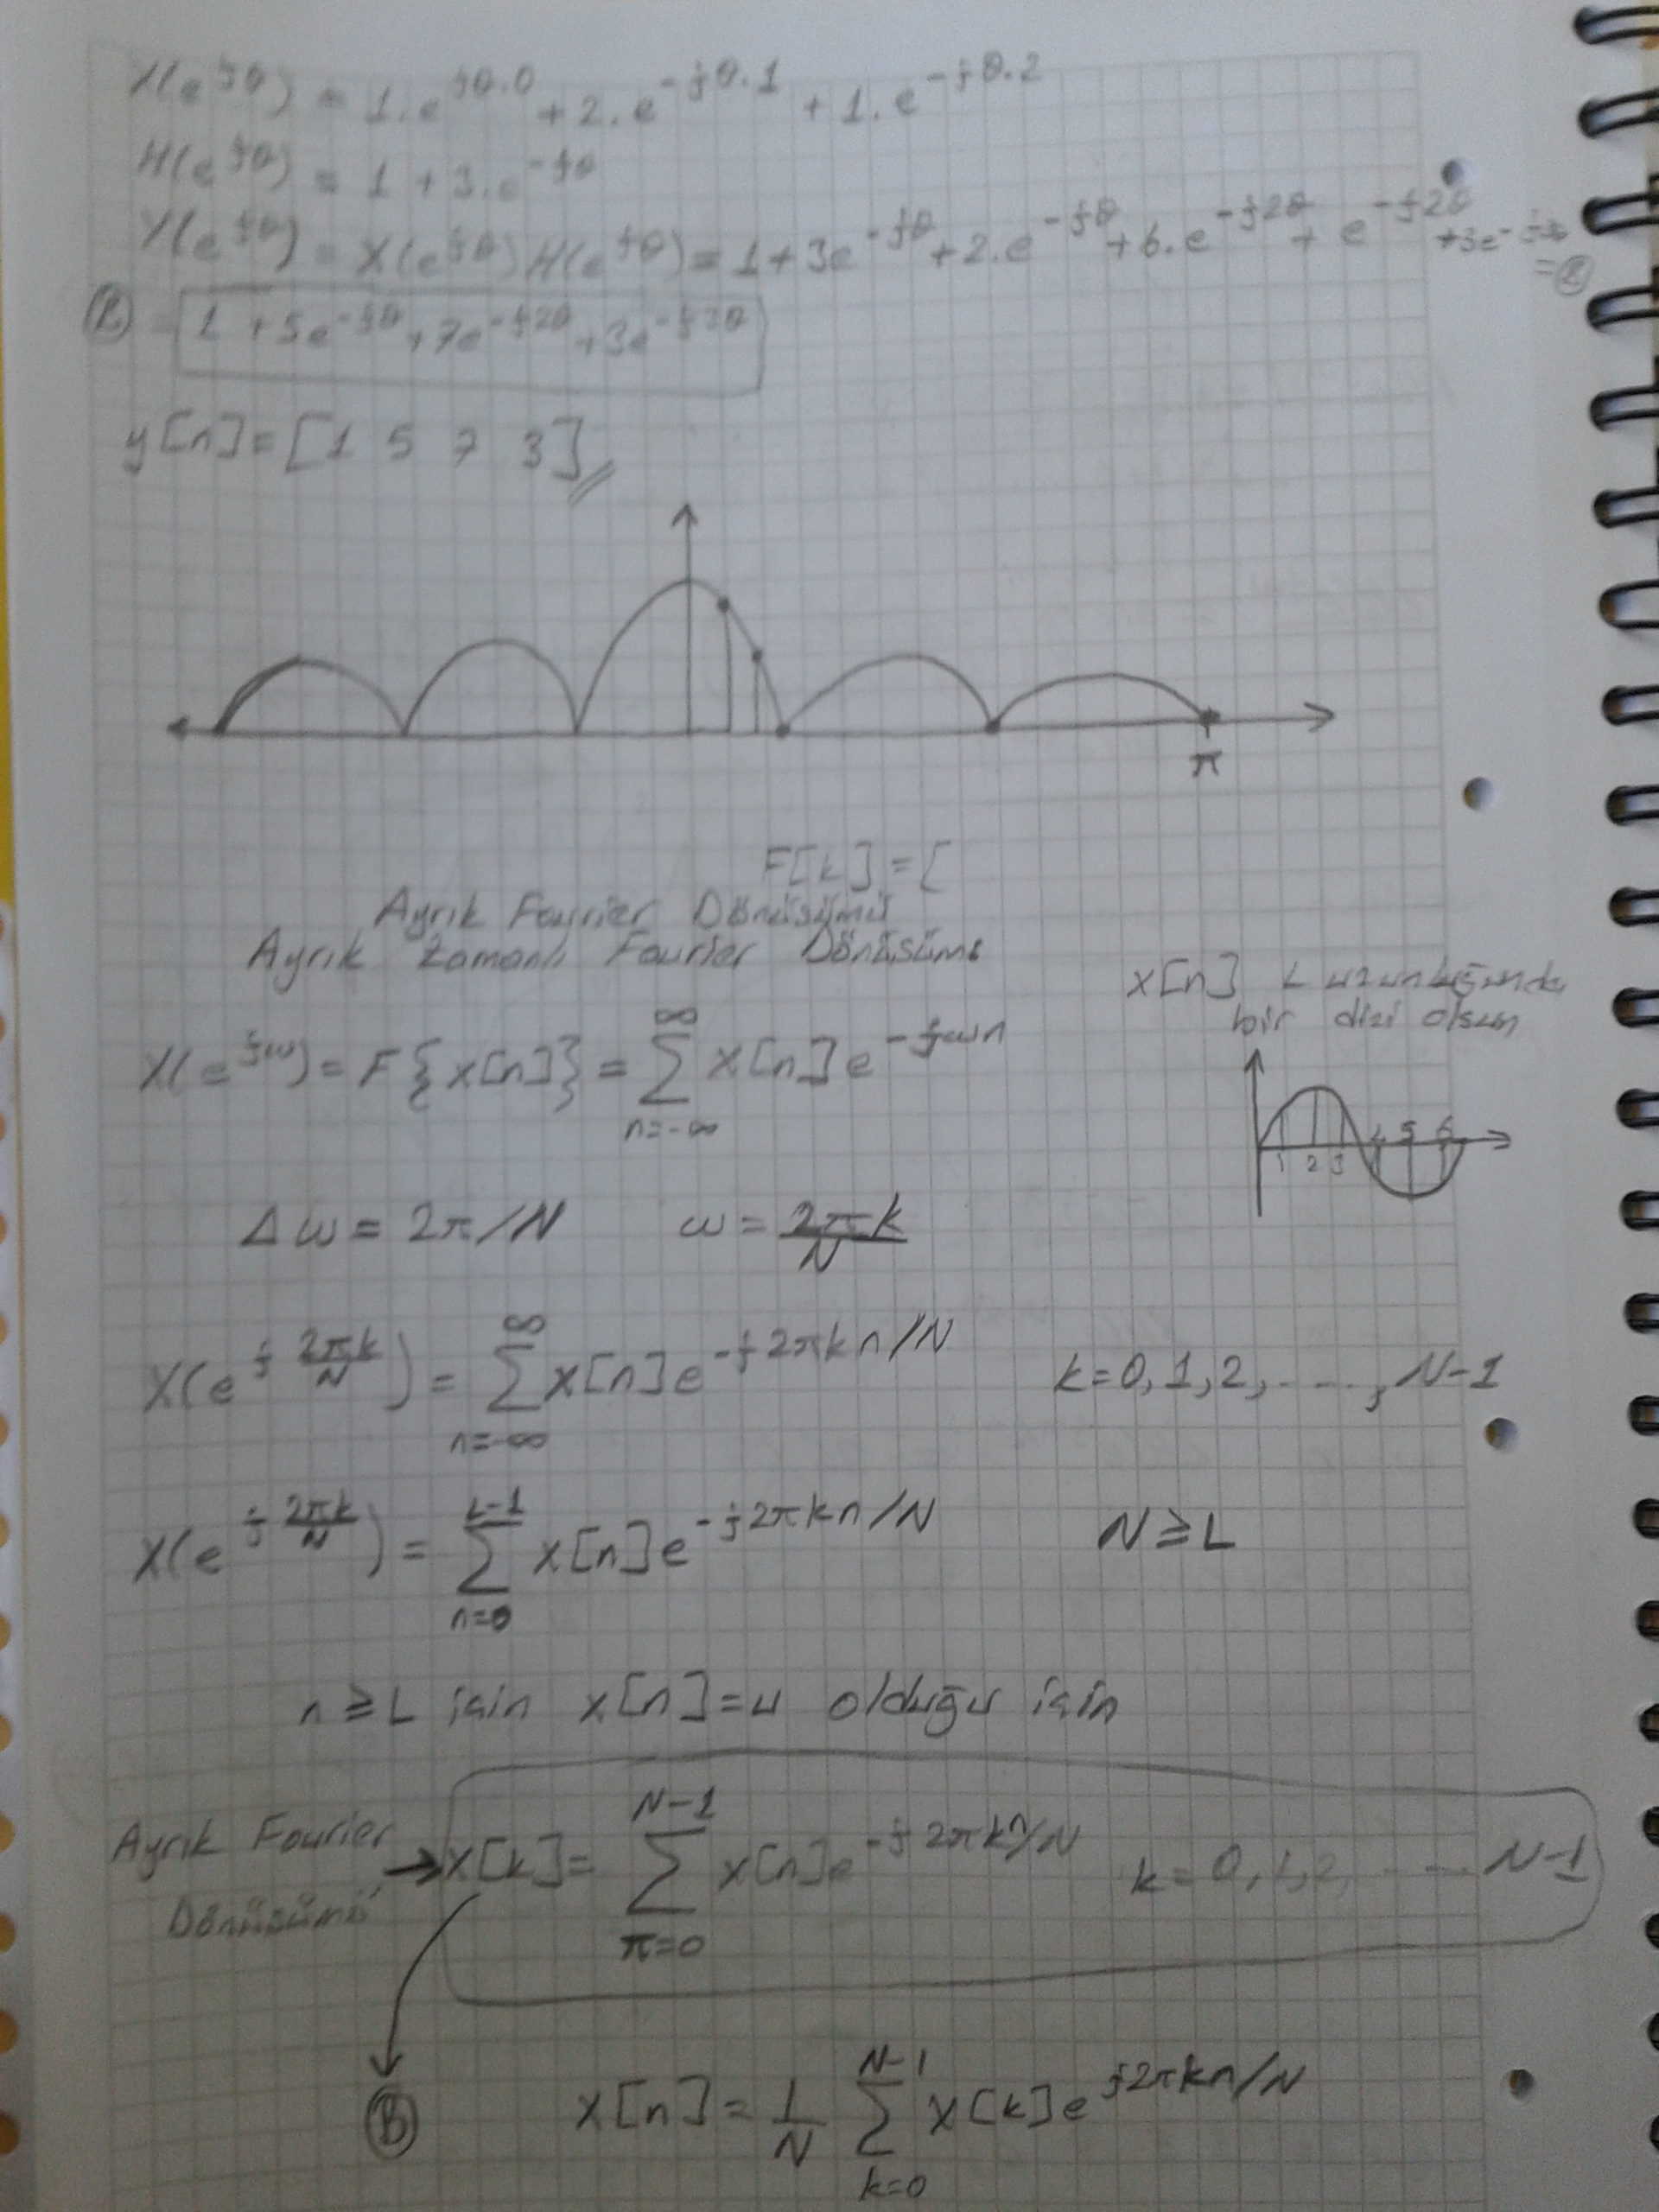 X(e^jθ) = 1.e^jθ.0 + 2.e^-jθ.1 + 1.e^-jθ.2
H(e^jθ) = 1 + 3.e^-jθ
Y(e^jθ) = X(e^jθ)H(e^jθ) = 1+3e^-jθ+2.e^-jθ+6.e^-j2θ+e^-j2θ+3e^-j3θ = Ⓡ
Ⓡ = 1 + 5e^-jθ + 7e^-j2θ + 3e^-j3θ
y[n] = [1 5 7 3]//
π
F[k] = [
Ayrık Fourier Dönüşümü
Ayrık Zamanlı Fourier Dönüşümü
x[n] L uzunluğunda
bir dizi olsun
X(e^jω) = F{x[n]} = ∑_{n=-∞}^{∞} x[n]e^-jωn
1 2 3 4 5 6
Δω = 2π/N ω = 2πk/N
X(e^j 2πk/N) = ∑_{n=-∞}^{∞} x[n]e^-j2πkn/N k=0,1,2,....,N-1
X(e^j 2πk/N) = ∑_{n=0}^{L-1} x[n]e^-j2πkn/N N≥L
n≥L için x[n]=u olduğu için
Ayrık Fourier
Dönüşümü → X[k] = ∑_{π=0}^{N-1} x[n]e^-j2πkn/N k=0,1,2,.... N-1
Ⓑ x[n] = 1/N ∑_{k=0}^{N-1} X[k]e^j2πkn/N